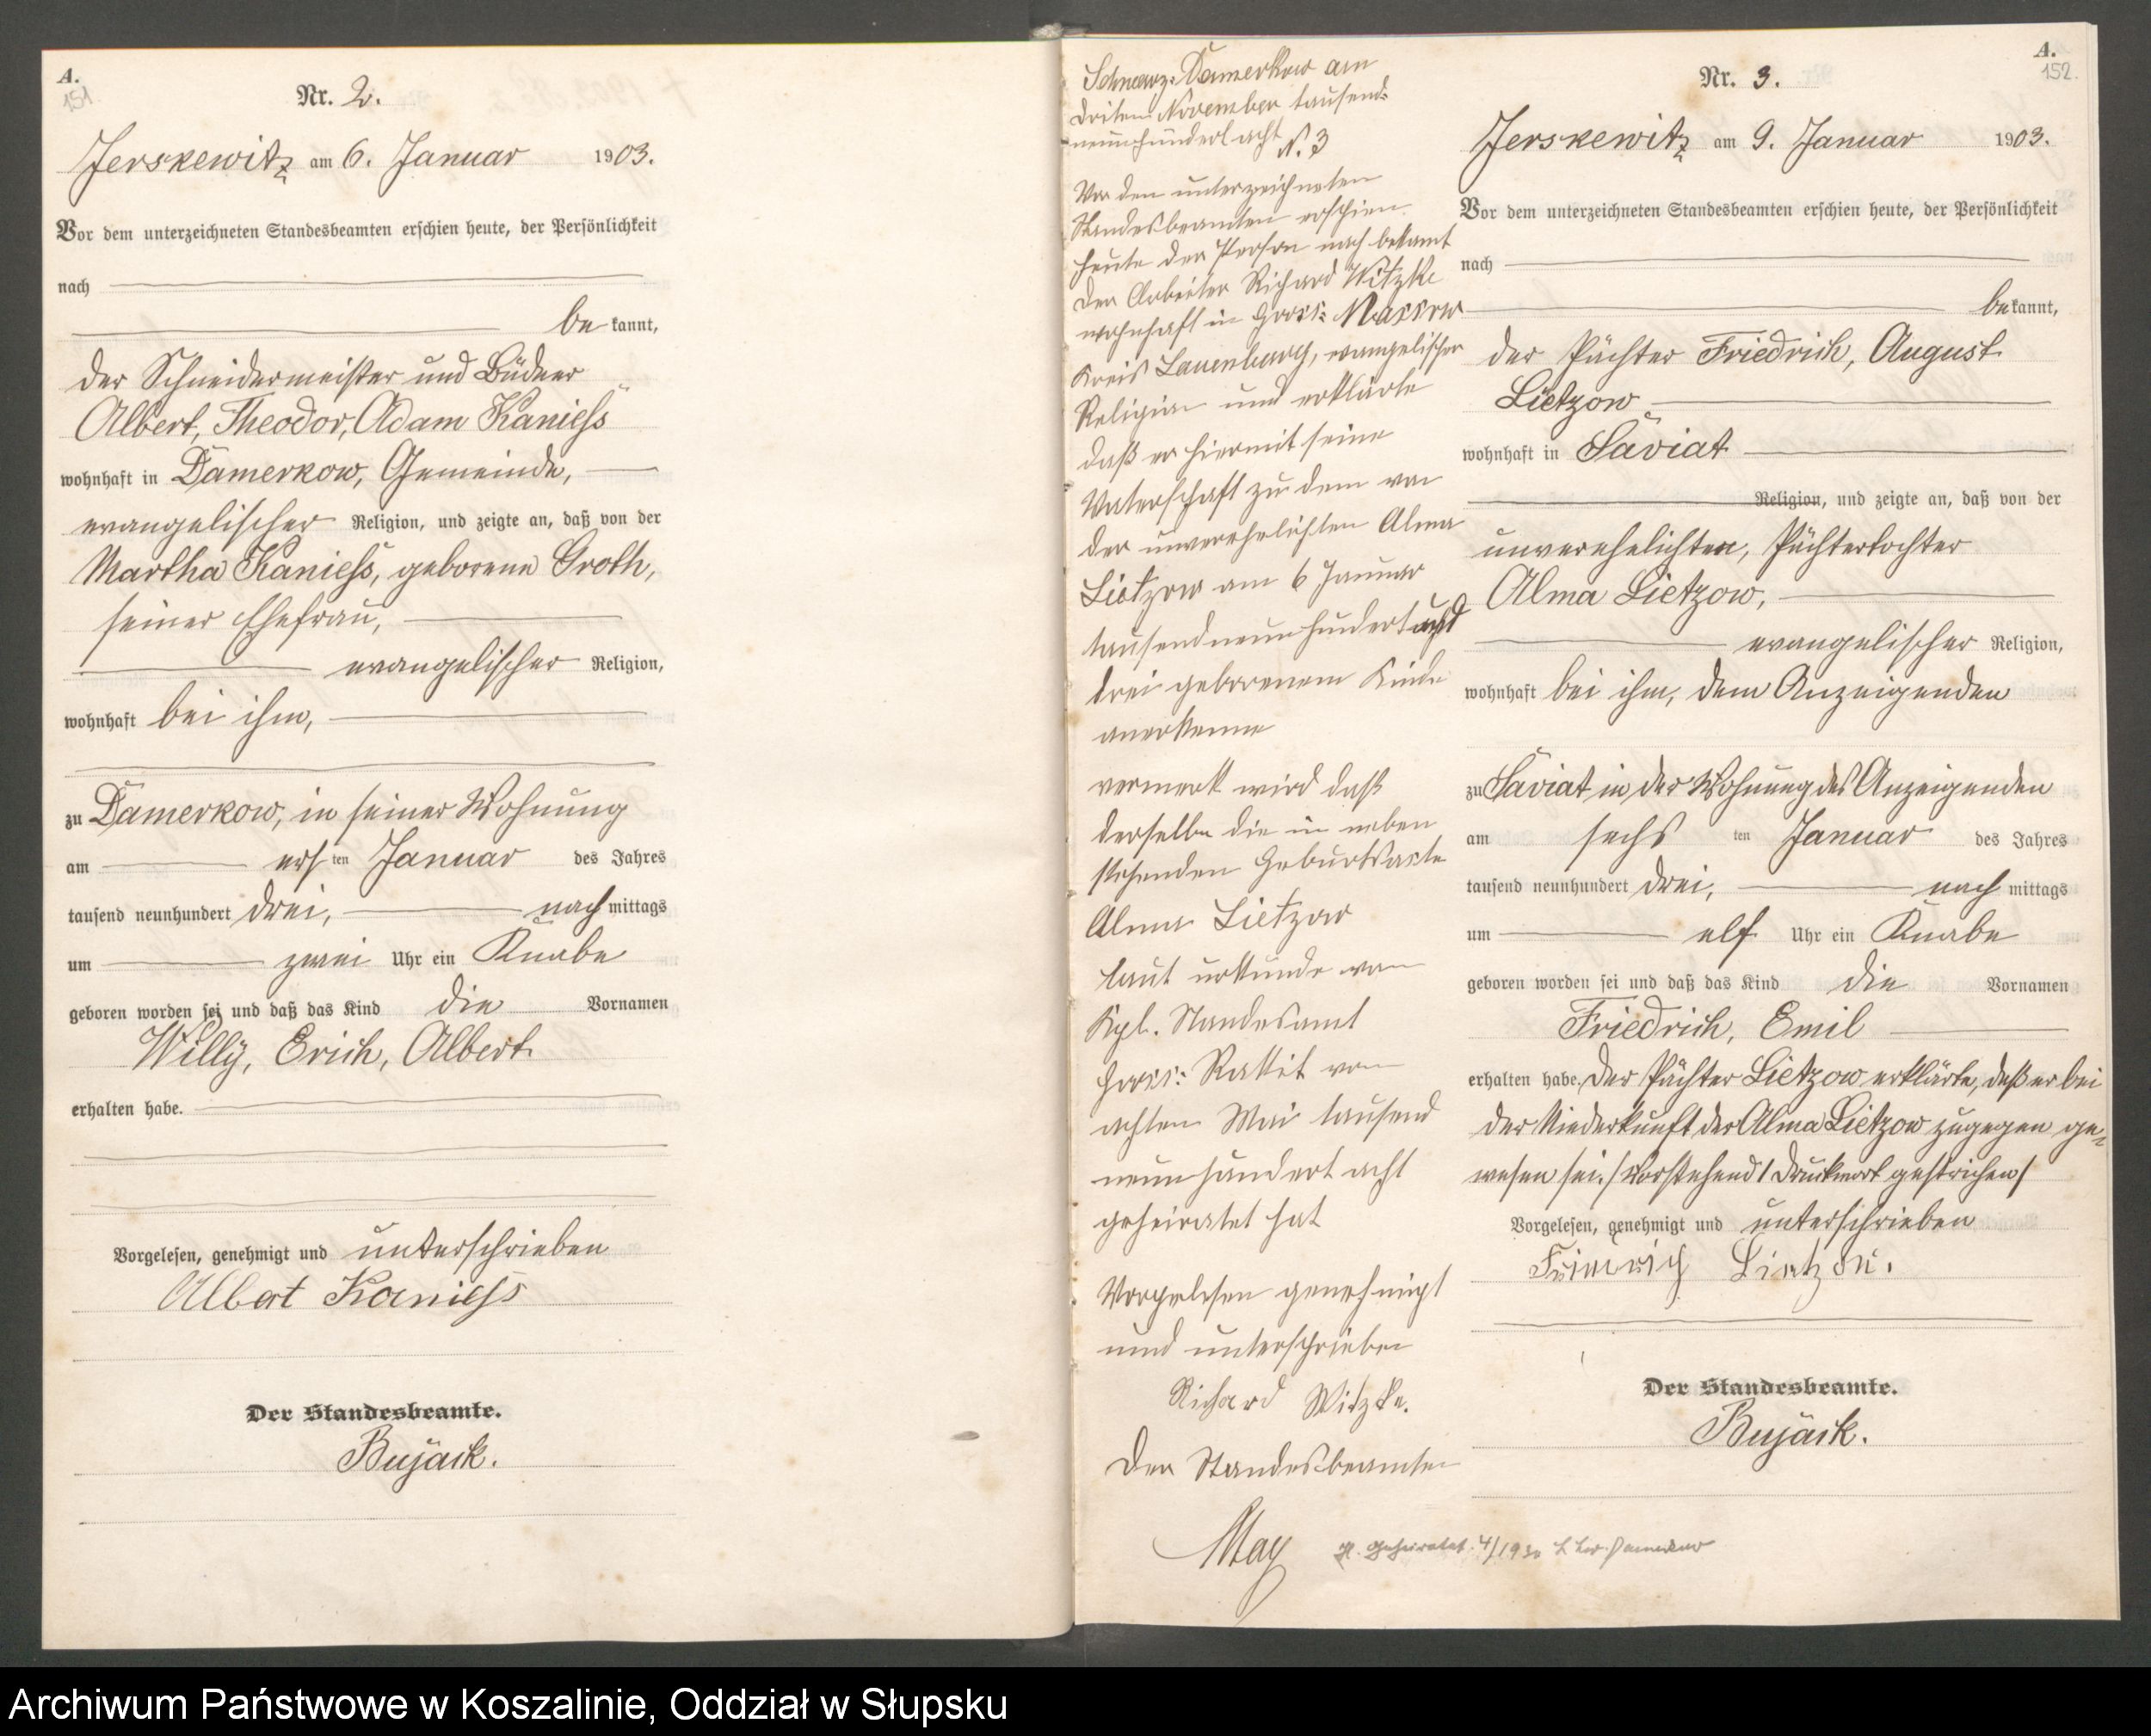 A.
151
Nr. 2.
Jerskewitz am 6. Januar 1903.
Vor dem unterzeichneten Standesbeamten erschien heute, der Persönlichkeit
nach
bekannt,
der Schneidermeister und Büdner
Albert, Theodor, Adam Kaniess
wohnhaft in Damerkow, Gemeinde,
evangelischer Religion, und zeigte an, daß von der
Martha Kaniess, geborene Groth,
seiner Ehefrau,
evangelischer Religion,
wohnhaft bei ihm,
zu Damerkow, in seiner Wohnung
am ersten Januar des Jahres
tausend neunhundert drei, nachmittags
um zwei Uhr ein Knabe
geboren worden sei und daß das Kind die Vornamen
Willy, Erich, Albert
erhalten habe.
Vorgelesen, genehmigt und unterschrieben
Albert Kaniess
Der Standesbeamte.
Bujack.
Schwarz-Damerkow am
driten November tausend-
neunhundert acht N. 3
Vor den unterzeichneten
Standesbeamten erschien
heute der Person nach bekant
der Arbeiter Richard Witzke
wohnhaft in Gross: Massow
Kreis Lauenburg, evangelischer
Religion und erklärte
daß er hiermit seine
Vaterschaft zu dem von
der unverehelichten Alma
Lietzow am 6 Januar
tausendneunhundert und
drei geborenem Kinde
anerkenne
vermerk wird daß
derselbe die in neben
stehenden Geburtsacte
Alma Lietzow
laut urkunde vom
Kgl. Standesamt
Gross: Rakit vom
achten Mai tausend
neunhundert acht
geheiratet hat
Vorgelesen genehmigt
und unterschrieben
Richard Witzke.
Der Standesbeamten
May
geheiratet 4/1930
A.
152.
Nr. 3.
Jerskewitz am 9. Januar 1903.
Vor dem unterzeichneten Standesbeamten erschien heute, der Persönlichkeit
nach
bekannt,
der Pächter Friedrich, August
Lietzow
wohnhaft in Saviat
Religion, und zeigte an, daß von der
unverehelichten, Pächtertochter
Alma Lietzow,
evangelischer Religion,
wohnhaft bei ihm, dem Anzeigenden
zu Saviat in der Wohnung des Anzeigenden
am sechs ten Januar des Jahres
tausend neunhundert drei, nachmittags
um elf Uhr ein Knabe
geboren worden sei und daß das Kind die Vornamen
Friedrich, Emil
erhalten habe. Der Pächter Lietzow erklärte, daß er bei
der Niederkunft der Alma Lietzow zugegen ge-
wesen sei. / Vorstehend 1 Druckwort gestrichen /
Vorgelesen, genehmigt und unterschrieben
Friedrich Lietzow.
Der Standesbeamte.
Bujack.
Archiwum Państwowe w Koszalinie, Oddział w Słupsku